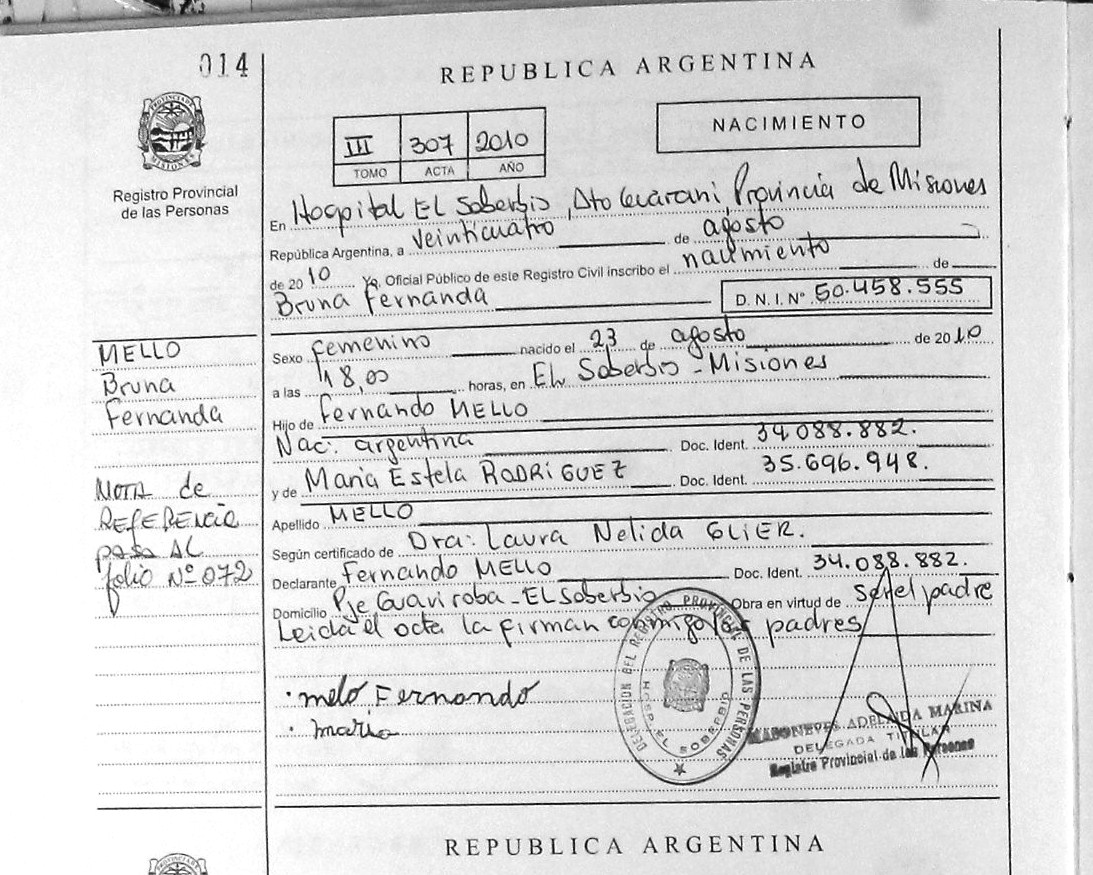 014
REPUBLICA ARGENTINA
PROVINCIA DE MISIONES
Registro Provincial
de las Personas
III 307 2010
TOMO ACTA AÑO
NACIMIENTO
En Hospital El Soberbio, Dto Guarani, Provincia de Misiones
República Argentina, a veinticuatro de agosto
de 2010 Yo, Oficial Público de este Registro Civil inscribo el nacimiento de
Bruna Fernanda D. N. I. N° 50.458.555
MELLO
Bruna
Fernanda
Sexo femenino nacido el 23 de agosto de 2010
a las 18,00 horas, en El Soberbio - Misiones
Hijo de Fernando MELLO
Nac: argentina Doc. Ident. 34.088.882.
y de Maria Estela RODRIGUEZ Doc. Ident. 35.696.948.
Apellido MELLO
Según certificado de Dra: Laura Nelida GLIER.
Declarante Fernando MELLO Doc. Ident. 34.088.882.
Domicilio Pje Guaviroba - El Soberbio Obra en virtud de ser el padre
Leida el acta la firman conmigo los padres
NOTA de
REFERENCIA
pasa AL
folio N° 072
melo Fernando
maria
DELEGACION DEL REGISTRO PROVINCIAL DE LAS PERSONAS
HOSP. EL SOBERBIO
ADELAIDA MARINA
DELEGADA TITULAR
Registro Provincial de las Personas
REPUBLICA ARGENTINA